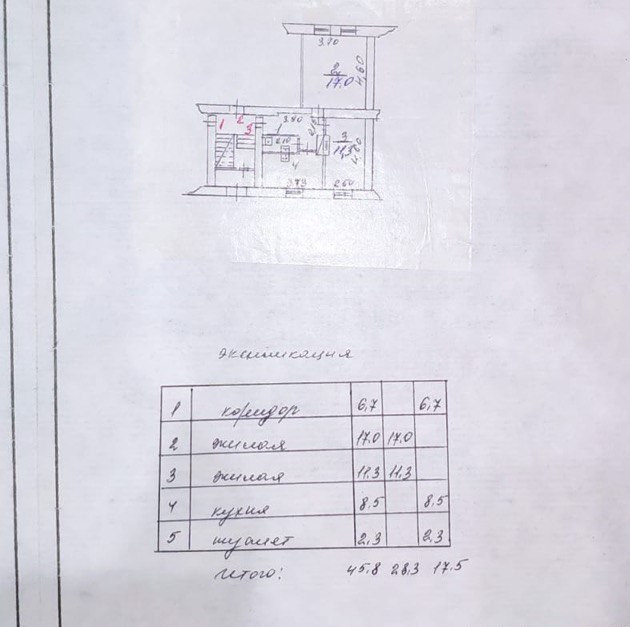 3.70
2
17.0
4.60
1 2 3
3.80
2.10
3
11.3
4.60
4
3.73
2.60
экспликация
1 коридор 6,7 6,7
2 жилая 17.0 17.0
3 жилая 11.3 11,3
4 кухня 8,5 8,5
5 туалет 2,3 2,3
Итого: 45,8 28,3 17.5